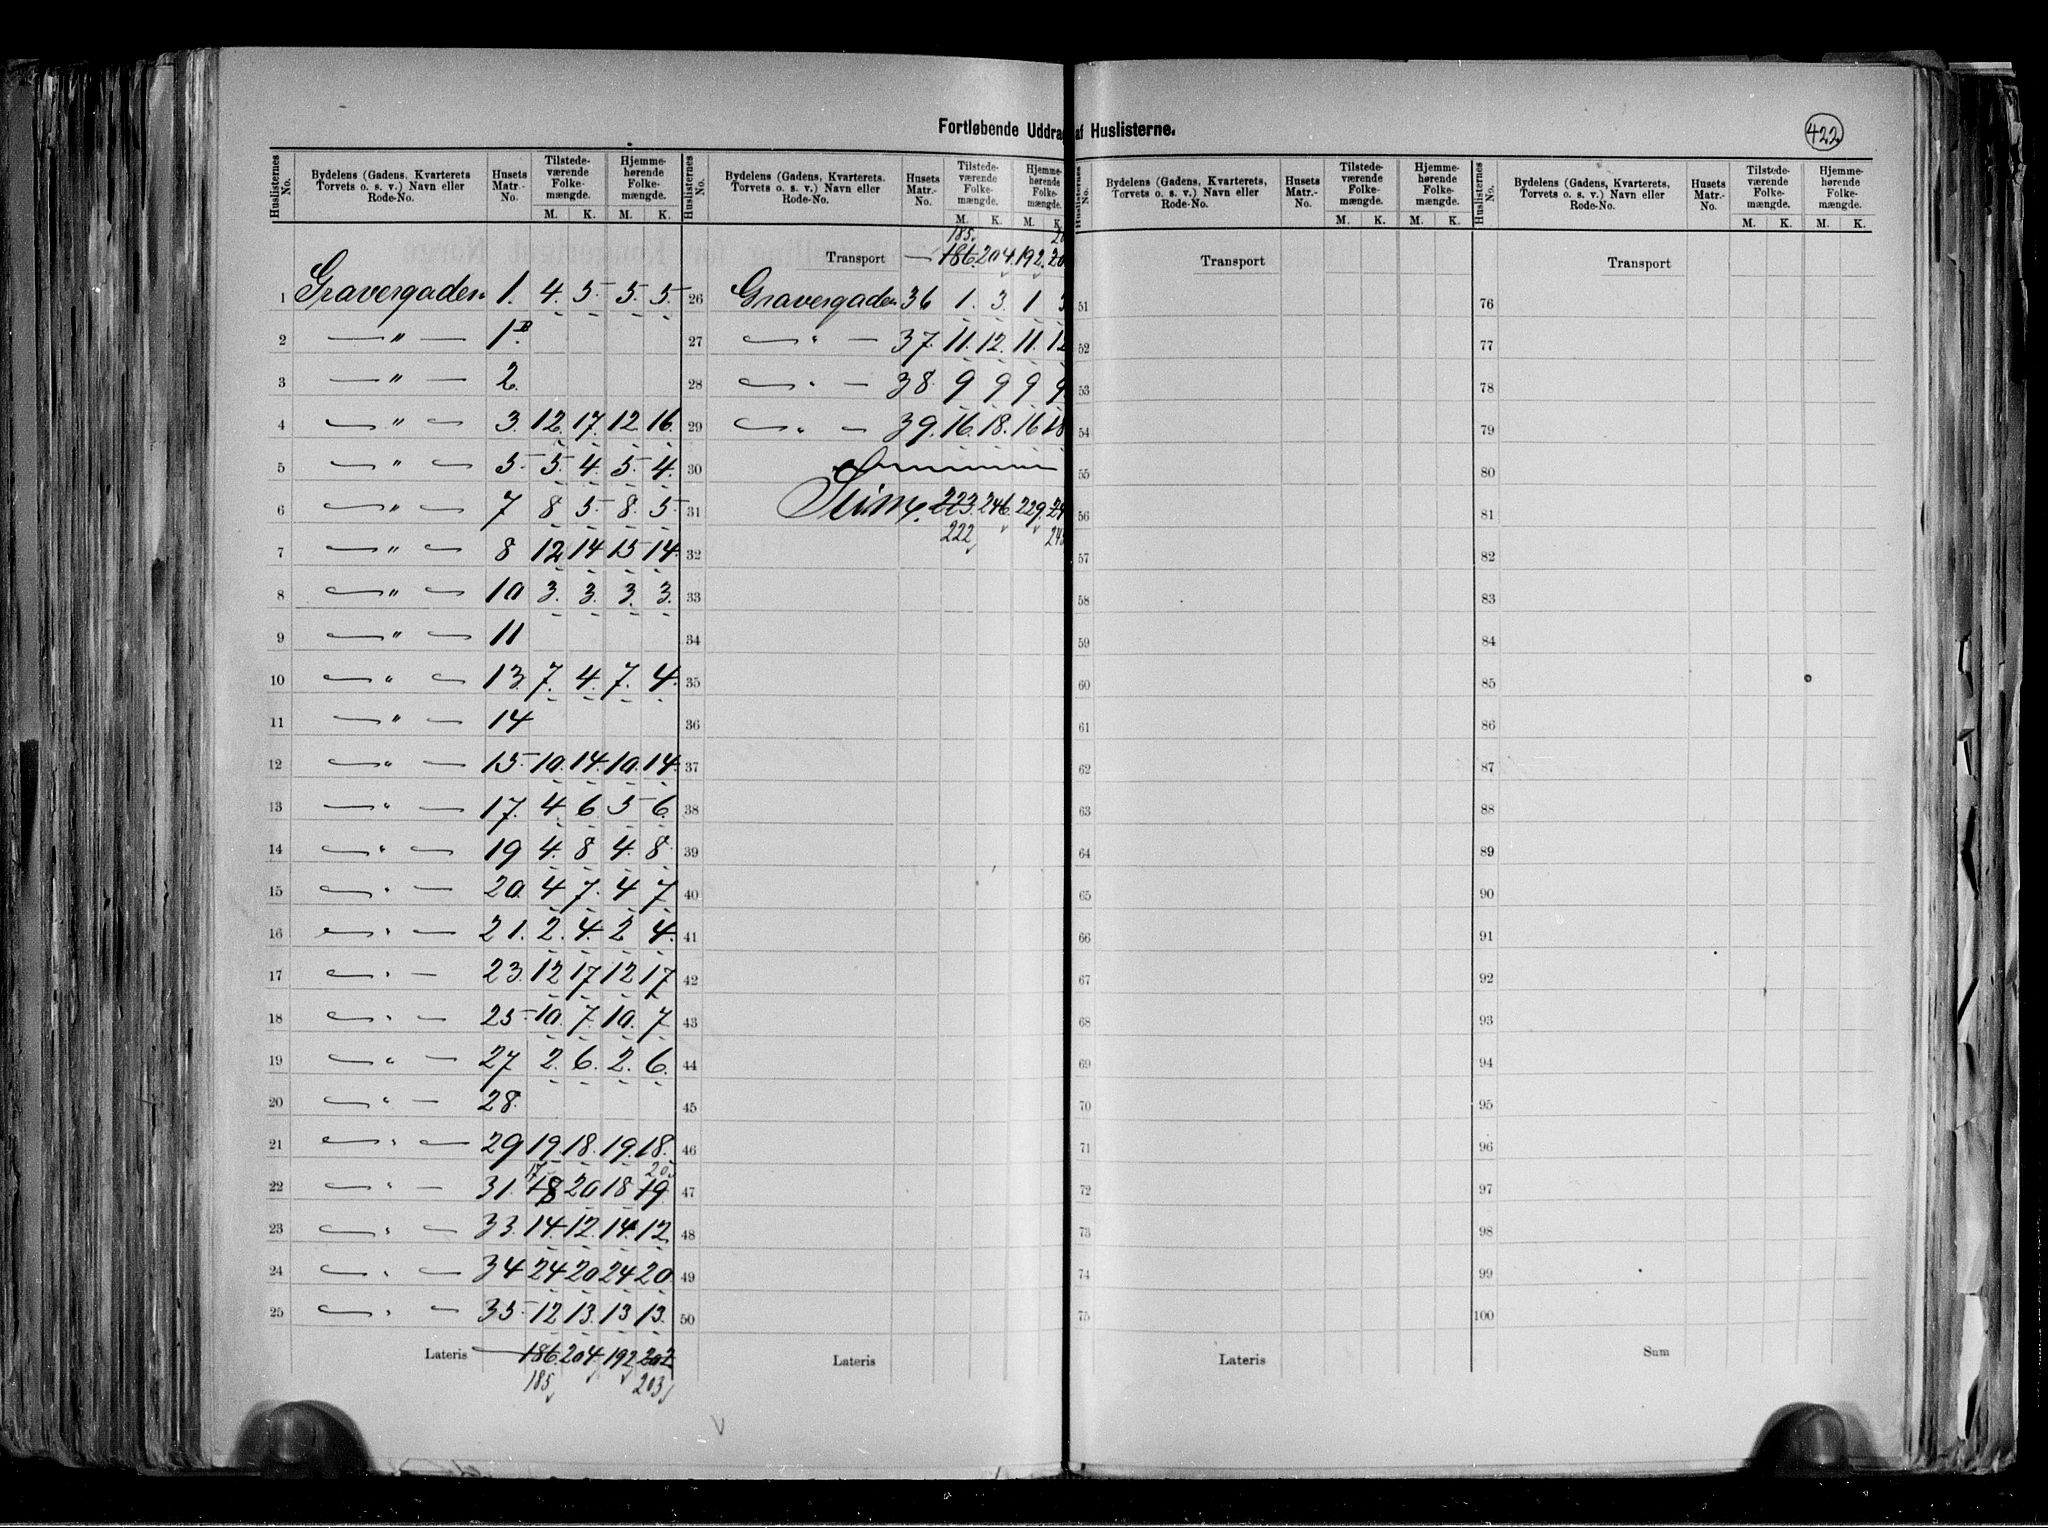 Fortløbende Uddra af Huslisterne.
422
Huslisternes No. Bydelens (Gadens, Kvarterets Torvets o. s. v.) Navn eller Rode-No. Husets Matr.-No. Tilstede-værende Folke-mængde. M. K. Hjemme-hørende Folke-mængde. M. K.
1 Gravergaden 1. 4. 5. 5. 5.
2 — " — 1B
3 — " — 2.
4 — " — 3. 12. 17. 12. 16.
5 — " — 5. 5. 4. 5. 4.
6 — " — 7 8 5. 8. 5.
7 — " — 8 12 14 15 14.
8 — " — 10 3. 3. 3. 3.
9 — " — 11
10 — " — 13. 7. 4. 7. 4.
11 — " — 14
12 — " — 15. 10. 14. 10. 14.
13 — " — 17. 4. 6 5 6.
14 — " — 19 4. 8 4. 8.
15 — " — 20. 4 7. 4 7
16 — " — 21. 2. 4. 2 4.
17 — " — 23. 12 17 12 17
18 — " — 25. 10. 7. 10. 7
19 — " — 27 2. 6. 2. 6.
20 — " — 28.
21 — " — 29 19. 18. 19. 18.
17 20
22 — " — 31. 18 20 18 19
23 — " — 33. 14. 12. 14. 12
24 — " — 34 24 20 24 20
25 — " — 35. 12 13. 13 13.
Lateris — 186 204 192 202
185 203
Huslisternes No. Bydelens (Gadens, Kvarterets, Torvets o. s. v.) Navn eller Rode-No. Husets Matr.-No. Tilstede-værende Folke-mængde. M. K. Hjemme-hørende Folke-mængde. M. K
185.
Transport — 186. 204. 192. 20
26 Gravergaden 36 1. 3. 1 3
27 — " — 37. 11. 12. 11. 12
28 — " — 38. 9 9 9 9
29 — " — 39. 16. 18. 16 18
30
31 Sum. 223. 246. 229. 24
222 24
32
33
34
35
36
37
38
39
40
41
42
43
44
45
46
47
48
49
50
Lateris
Huslisternes No. Bydelens (Gadens, Kvarterets, Torvets o. s. v.) Navn eller Rode-No. Husets Matr.-No. Tilstede-værende Folke-mængde. M. K. Hjemme-hørende Folke-mængde. M. K.
Transport
51
52
53
54
55
56
57
58
59
60
61
62
63
64
65
66
67
68
69
70
71
72
73
74
75
Lateris
Huslisternes No. Bydelens (Gadens, Kvarterets, Torvets o. s. v.) Navn eller Rode-No. Husets Matr.-No. Tilstede-værende Folke-mængde. M. K. Hjemme-hørende Folke-mængde. M. K.
Transport
76
77
78
79
80
81
82
83
84
85
86
87
88
89
90
91
92
93
94
95
96
97
98
99
100
Sum